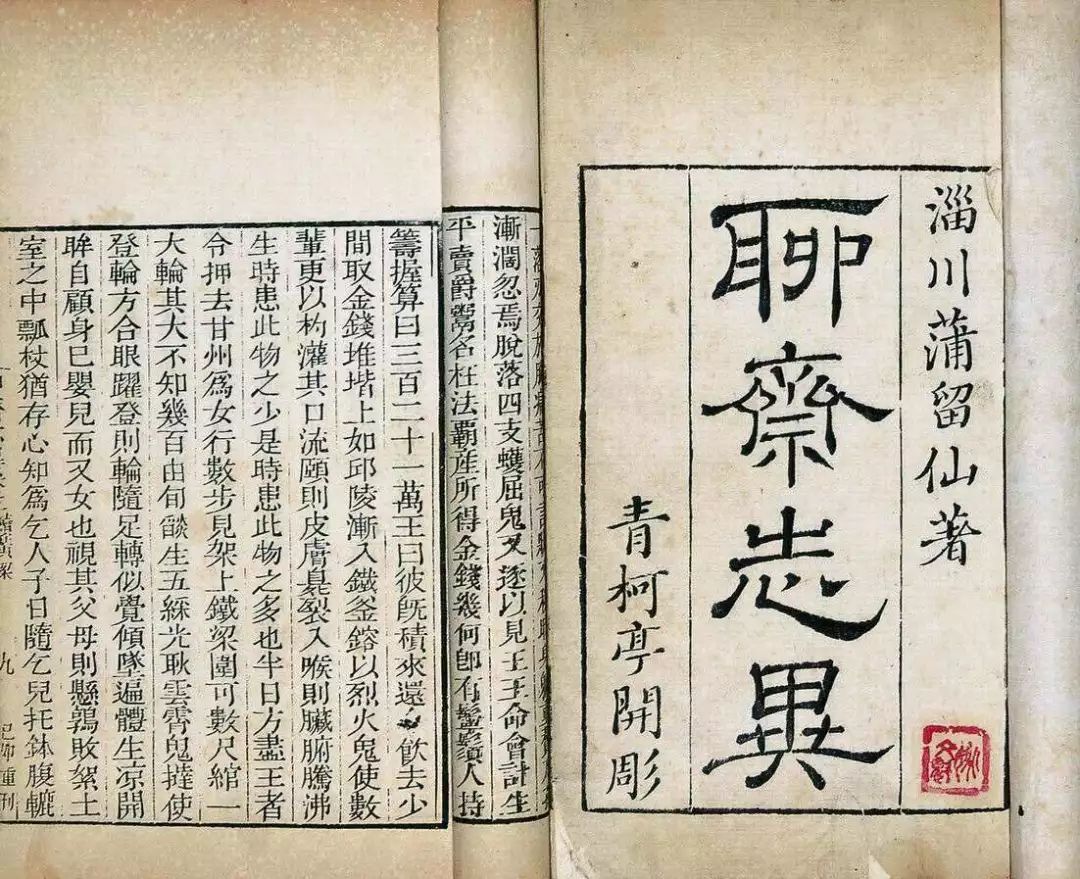 淄川蒲留仙著
聊齋志異
青柯亭開彫
漸濶忽焉脫落四支蠖屈鬼又逐以見王王命會計生
平賣爵鬻名枉法覇產所得金錢幾何卽有鬡鬚人持
籌握算曰三百二十一萬王曰彼既積來還飲去少
間取金錢堆堦上如邱陵漸入鐵釜鎔以烈火鬼使數
輩更以杓灌其口流頤則皮膚臭裂入喉則臟腑騰沸
生時患此物之少是時患此物之多也半日方盡王者
令押去甘州爲女行數步見架上鐵梁圍可數尺綰一
大輪其大不知幾百由旬燄生五綵光耿雲霄鬼撻使
登輪方合眼躍登則輪隨足轉似覺傾墜遍體生凉開
眸自顧身已嬰兒而又女也視其父母則懸鶉敗絮土
室之中瓢杖猶存心知爲乞人子日隨乞兒托鉢腹轆
九
重刊